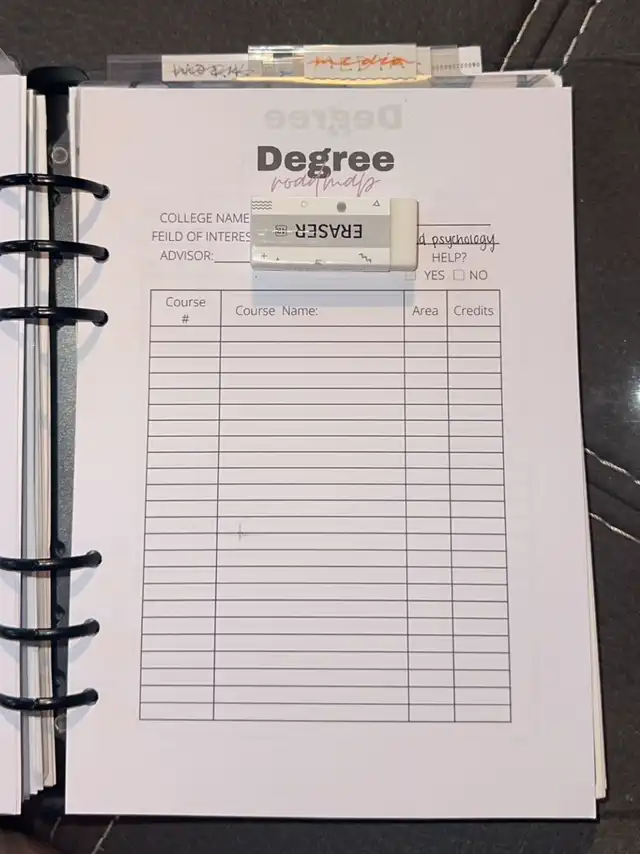 media
Degree
roadmap
COLLEGE NAME
FEILD OF INTERES
psychology
ADVISOR:
HELP?
YES NO
ERASER
Course # Course Name: Area Credits